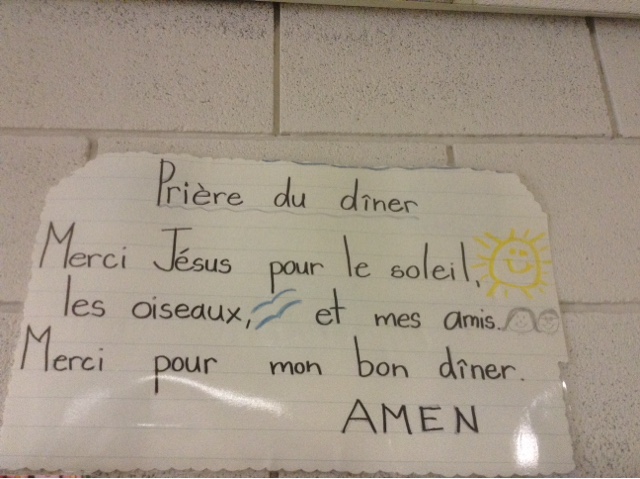 Prière du dîner
Merci Jésus pour le soleil,
les oiseaux, et mes amis.
Merci pour mon bon dîner.
AMEN